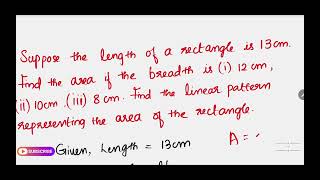 Suppose the length of a rectangle is 13cm.
Find the area if the breadth is (i) 12 cm,
(ii) 10cm .(iii) 8 cm. Find the linear pattern
representing the area of the rectangle.
A =
SUBSCRIBE
Given, Length = 13cm